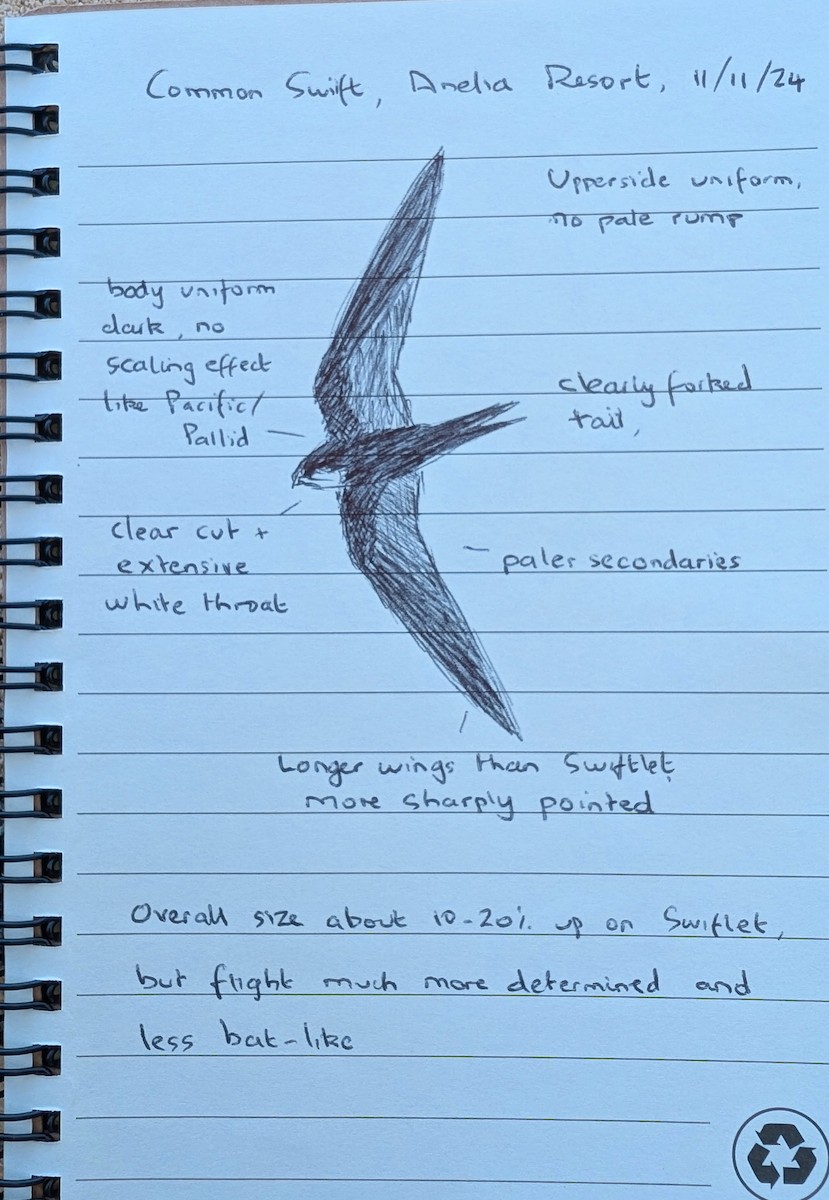 Common Swift, Anelia Resort, 11/11/24
Upperside uniform,
no pale rump
body uniform
dark, no
scaling effect
like Pacific/
Pallid
clearly forked
tail,
clear cut +
extensive
white throat
paler secondaries
Longer wings than Swiftlet,
more sharply pointed
Overall size about 10-20% up on Swiflet,
but flight much more determined and
less bat-like